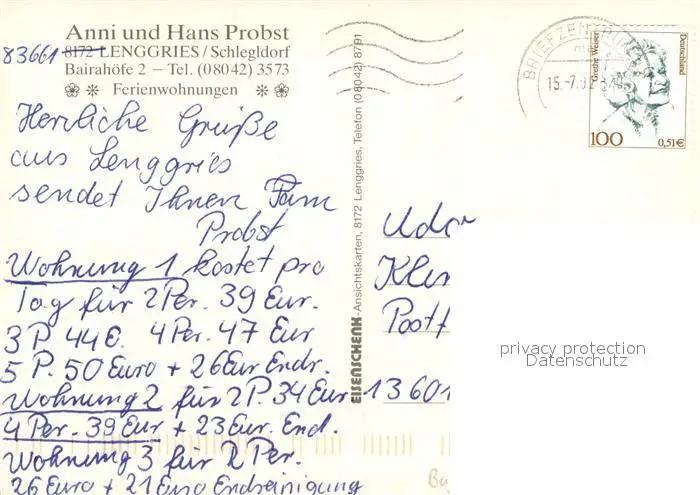 Anni und Hans Probst
83661 8172 LENGGRIES / Schlegldorf
Bairahöfe 2 – Tel. (08042) 3573
Ferienwohnungen
Herzliche Grüße
aus Lenggries
sendet Ihnen Fam
Probst
Wohnung 1 kostet pro
Tag für 2 Per. 39 Eur.
3 P. 44 E. 4 Per. 47 Eur
5 P. 50 Euro + 26 Eur Endr.
Wohnung 2 für 2 P. 34 Eur
4 Per. 39 Eur + 23 Eur. End.
Wohnung 3 für 2 Per.
26 Euro + 21 Euro Endreinigung
EISENSCHENK-Ansichtskarten, 8172 Lenggries, Telefon (08042) 8791
BRIEFZEN
15.-7.02
Grethe Weiser
Deutschland
100
0,51€
Udo
Postf
13601
privacy protection
Datenschutz